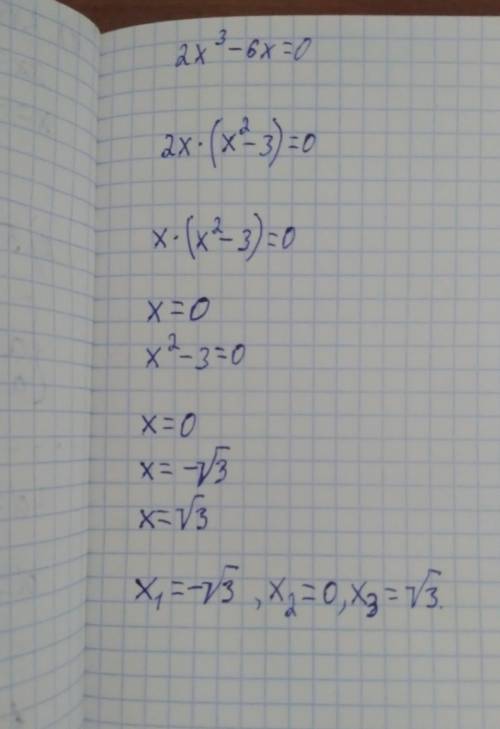 2x³-6x=0
2x·(x²-3)=0
x·(x²-3)=0
x=0
x²-3=0
x=0
x=-√3
x=√3
x₁=-√3, x₂=0, x₃=√3.